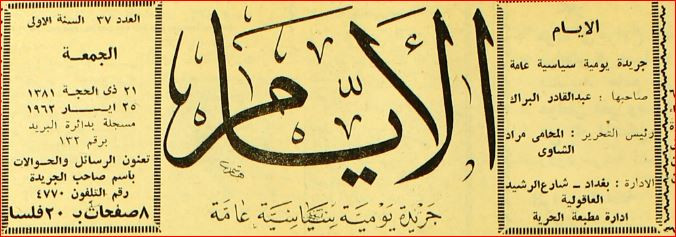 الايام
جريدة يومية سياسية عامة
صاحبها : عبدالقادر البراك
رئيس التحرير : المحامي مراد
الشاوى
الادارة : بغداد ــ شارع الرشيد
العاقولية
ادارة مطبعة الحرية
الأيام
جريدة يومية سياسية عامة
العدد ٣٧ السنة الاولى
الجمعة
٢١ ذى الحجة ١٣٨١
٢٥ ايـــار ١٩٦٢
مسجلة بدائرة البريد
برقم ١٣٢
تعنون الرسائل والحوالات
باسم صاحب الجريدة
رقم التلفون ٤٧٧٠
٨ صفحات بـ ٢٠ فلسا